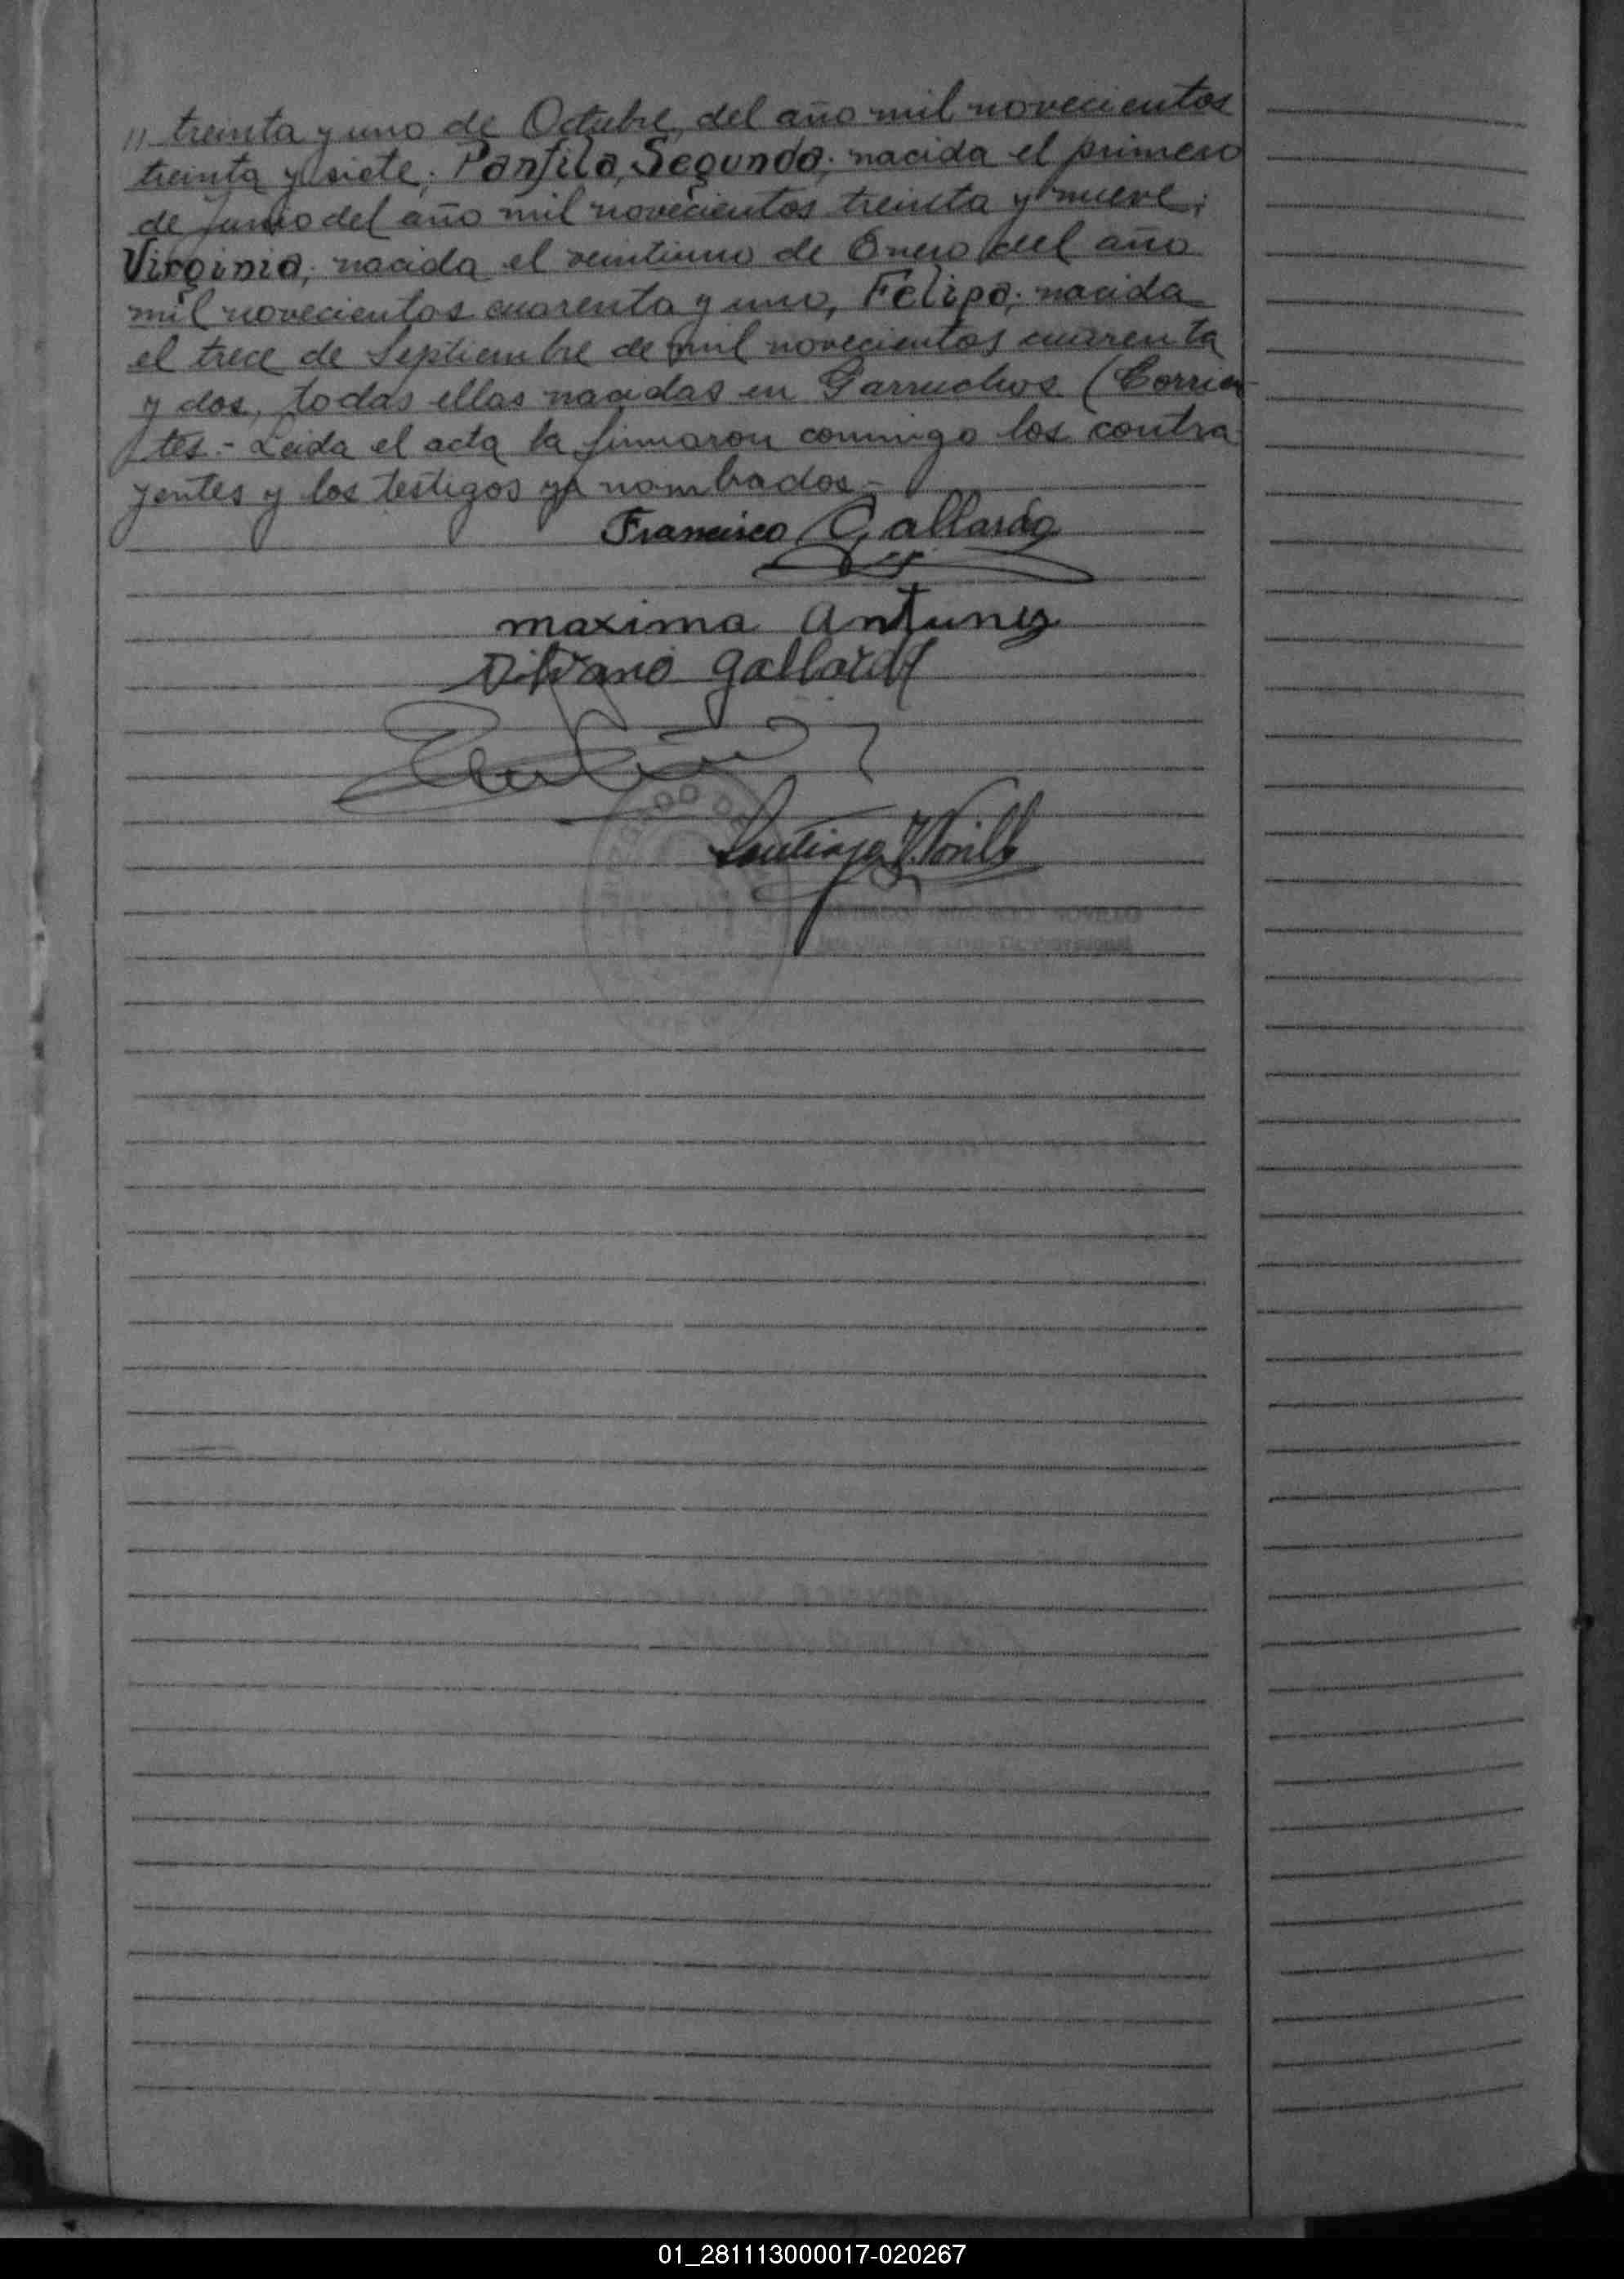 // treinta y uno de Octubre, del año mil novecientos
treinta y siete; Panfila Segunda; nacida el primero
de Junio del año mil novecientos treinta y nueve;
Virginia; nacida el veintiuno de Enero del año
mil novecientos cuarenta y uno, Felipa; nacida
el trece de Septiembre de mil novecientos cuarenta
y dos, todas ellas nacidas en Garruchos (Corrien-
tes.- Leida el acta la firmaron conmigo los contra-
yentes y los testigos ya nombrados.-
Francisco Gallardo
maxima Antunez
Gallardo
Santiago
NOVILLO
Provisional
01_281113000017-020267